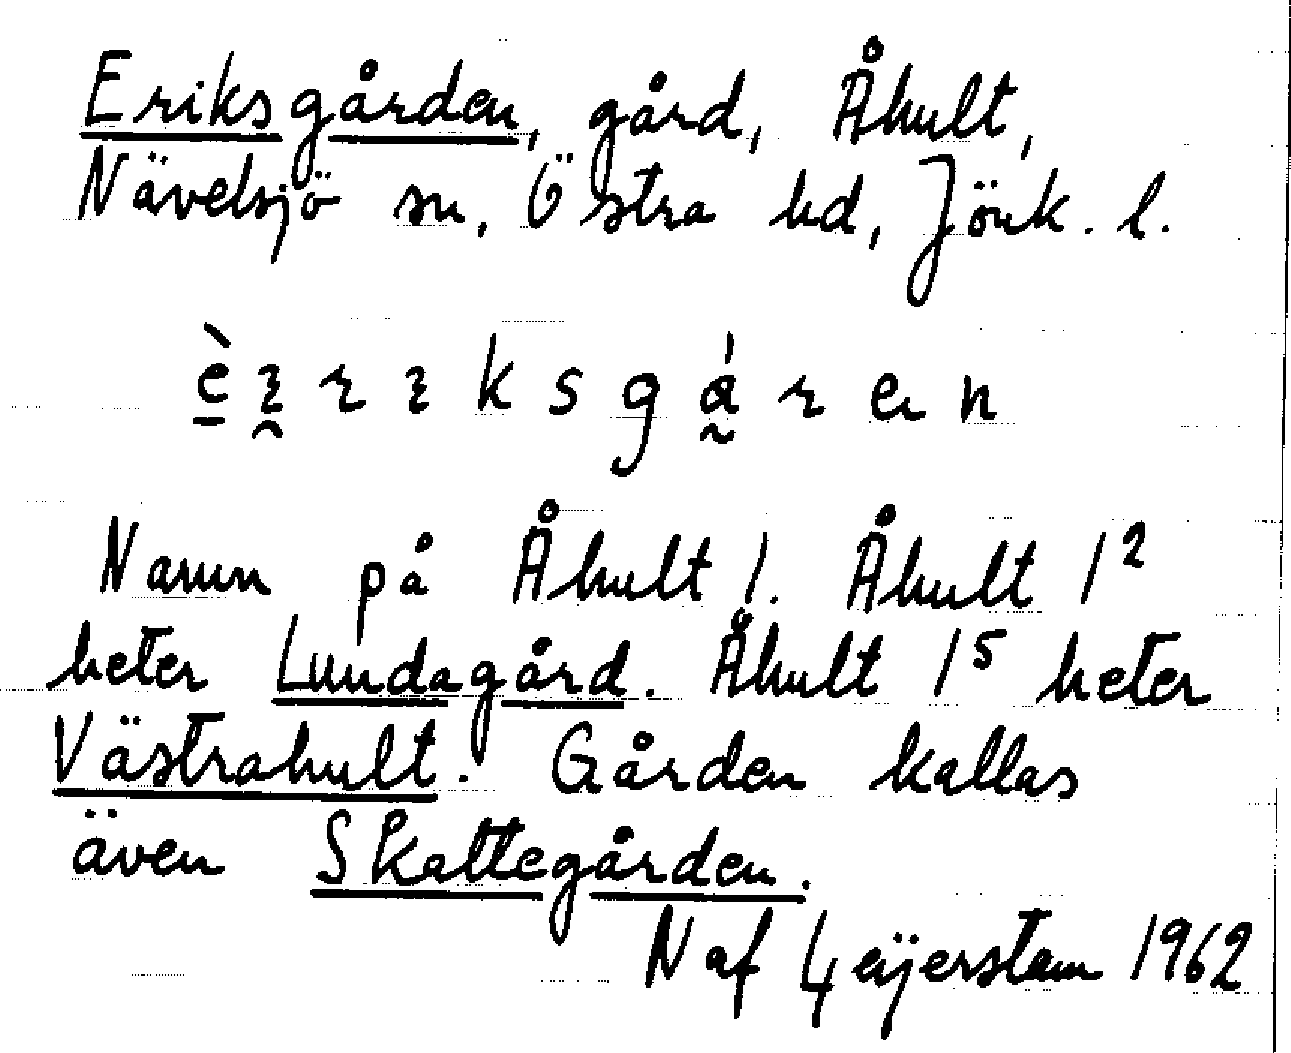 Eriksgården, gård, Åhult,
Nävelsjö sn, Östra hd, Jönk. l.
Namn på Åhult 1. Åhult 1²
heter Lundagård. Åhult 1⁵ heter
Västrahult. Gården kallas
även Skattegården.
N af Geijerstam 1962